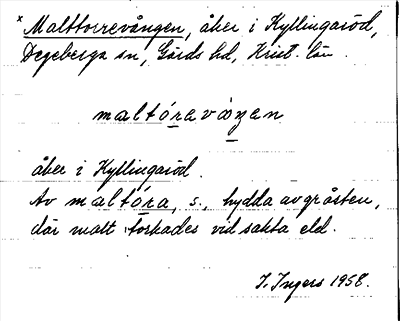 * Malttorrevången, åker i Kyllingaröd,
Degeberga sn, Gärds hd, Krist. län.
maltóravåŋen
åker i Kyllingaröd.
Av maltóra, s., hydda av gråsten,
där malt torkades vid sakta eld.
I. Ingers 1958.